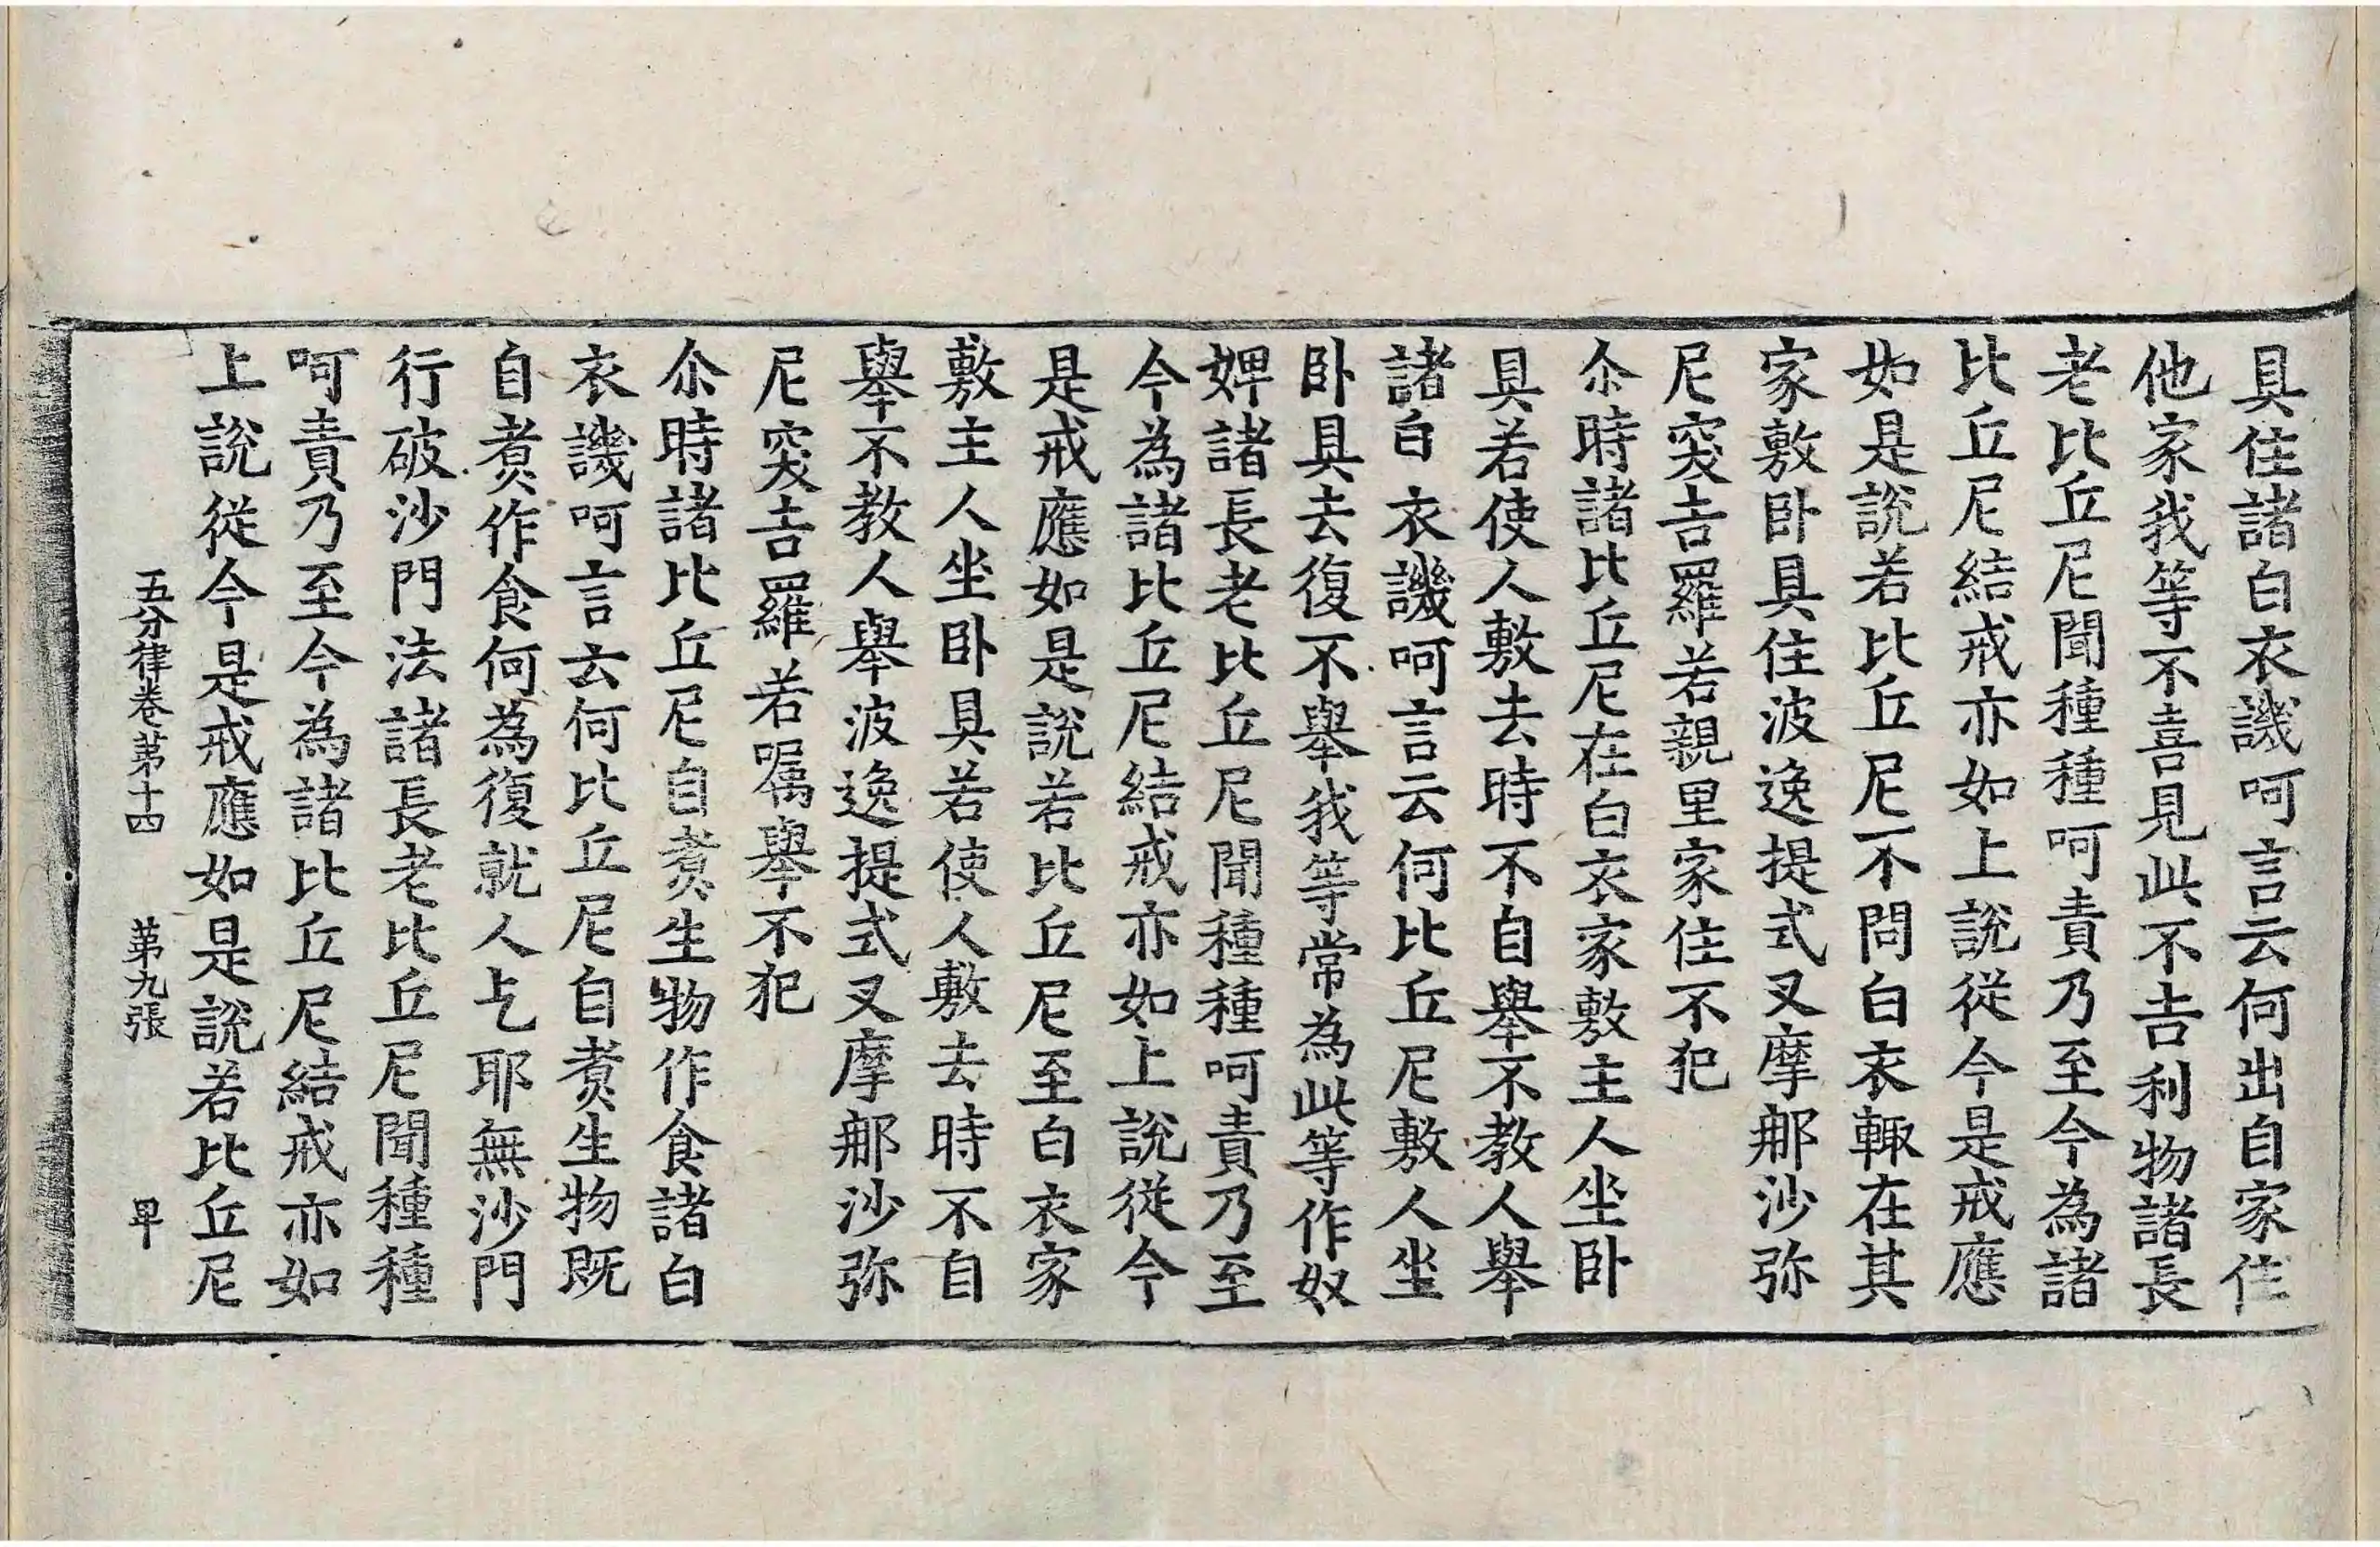 具住諸白衣譏呵言云何出自家住
他家我等不喜見此不吉利物諸長
老比丘尼聞種種呵責乃至今為諸
比丘尼結戒亦如上說從今是戒應
如是說若比丘尼不問白衣輙在其
家敷卧具住波逸提式叉摩那沙弥
尼突吉羅若親里家住不犯
尒時諸比丘尼在白衣家敷主人坐卧
具若使人敷去時不自舉不教人舉
諸白衣譏呵言云何比丘尼敷人坐
卧具去復不舉我等常為此等作奴
婢諸長老比丘尼聞種種呵責乃至
今為諸比丘尼結戒亦如上說從今
是戒應如是說若比丘尼至白衣家
敷主人坐卧具若使人敷去時不自
舉不教人舉波逸提式叉摩那沙弥
尼突吉羅若囑舉不犯
尒時諸比丘尼自煑生物作食諸白
衣譏呵言云何比丘尼自煑生物既
自煑作食何為復就人乞耶無沙門
行破沙門法諸長老比丘尼聞種種
呵責乃至今為諸比丘尼結戒亦如
上說從今是戒應如是說若比丘尼
五分律卷苐十四 苐九張 早